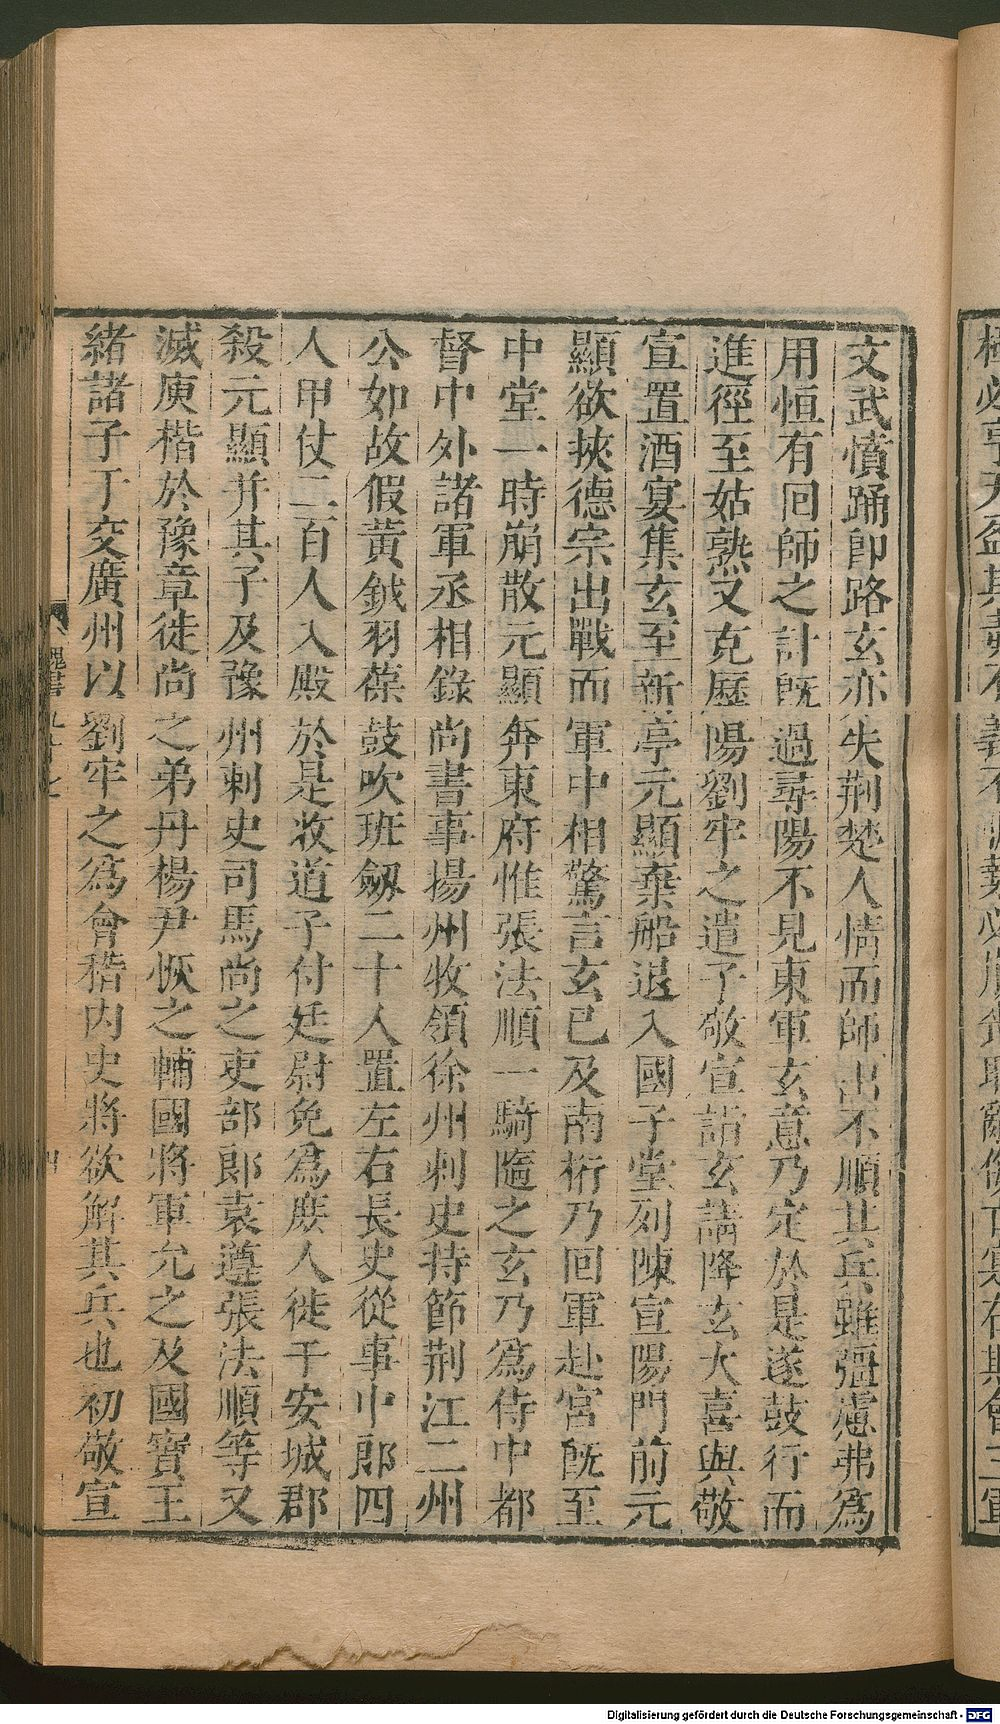 文武憤踊卽路玄亦失荆楚人情而師出不順其兵雖彊慮弗爲
用恒有回師之計旣過尋陽不見東軍玄意乃定於是遂鼓行而
進徑至姑熟又克歷陽劉牢之遣子敬宣詣玄請降玄大喜與敬
宣置酒宴集玄至新亭元顯棄船退入國子堂列陳宣陽門前元
顯欲挾德宗出戰而軍中相驚言玄已及南桁乃回軍赴宮旣至
中堂一時崩散元顯奔東府惟張法順一騎隨之玄乃爲侍中都
督中外諸軍丞相錄尚書事揚州牧領徐州刺史持節荆江二州
公如故假黃鉞羽葆鼓吹班劒二十人置左右長史從事中郎四
人甲仗二百人入殿於是收道子付廷尉免爲庶人徙于安城郡
殺元顯并其子及豫州刺史司馬尚之吏部郎袁遵張法順等又
滅庾楷於豫章徙尚之弟丹楊尹恢之輔國將軍允之及國寶王
緒諸子于交廣州以劉牢之爲會稽內史將欲解其兵也初敬宣
魏書
四
Digitalisierung gefördert durch die Deutsche Forschungsgemeinschaft - DFG